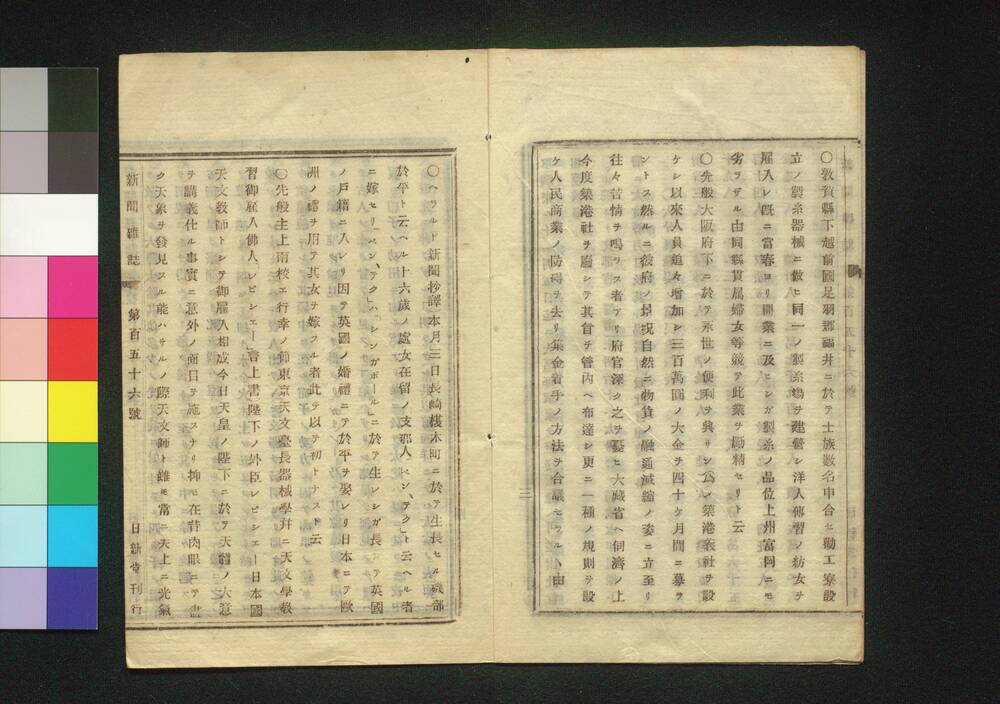 〇敦賀縣下越前國足羽郡福井ニ於テ士族数名申合セ勸工寮設
立ノ製糸器械ニ傚ヒ同一ノ製糸塲ヲ建營シ洋人傳習ノ紡女ヲ
雇入レ既ニ當春ヨリ開業ニ及ヒシガ製糸ノ品位上州富岡ニモ
劣ラザル由同縣貫属婦女等競テ此業ヲ勵精セリト云
〇先般大阪府下ニ於テ永世ノ便利ヲ興サン爲ノ築港義社ヲ設
ケシ以來人員追々增加シ三百萬圓ノ大金ヲ四十ケ月間ニ募ラ
ントス然ルニ該府ノ景况自然ニ物貨ノ融通减縮ノ姿ニ立至リ
往々苦情ヲ鳴ラス者アリ府官深ク之ヲ憂ヒ大藏省ヘ伺濟ノ上
今度築港社ヲ廢シテ其旨ヲ管内ヘ布達シ更ニ一種ノ規則ヲ設
ケ人民商業ノ防碍ヲ去リ集金着手ノ方法ヲ合議セラルヽ由
三
〇ヘラルド新聞抄譯本月三日長崎榎木町ニ於テ生長セル磯部
於平ト云ヘル十六歳ノ處女在留ノ支那人「ベン、テク」ト云ヘル者
ニ嫁セリ「ベン、テク」ハ「シンガポール」ニ於テ生レシガ長シテ英國
ノ戸籍ニ入レリ因テ英國ノ婚禮ニテ於平ヲ娶レリ日本ニテ歐
洲ノ禮ヲ用テ其女ヲ嫁スル者此ヲ以テ初トナスト云
〇先般主上南校エ行幸ノ節東京天文臺長器械學幷ニ天文學敎
習御雇入佛人「レピシエー」言上書陛下ノ外臣レピシエー日本國
天文敎師トシテ御雇入相成今日天皇ノ陛下ニ於テ天體ノ大意
ヲ講義仕ル事實ニ意外ノ面目ヲ施スナリ抑モ在昔肉眼ニテ盡
ク天象ヲ發見スル能ハサルノ際天文師ト雖モ常ニ天上ニ光氣
新聞雜誌　第百五十六號　日新堂刊行